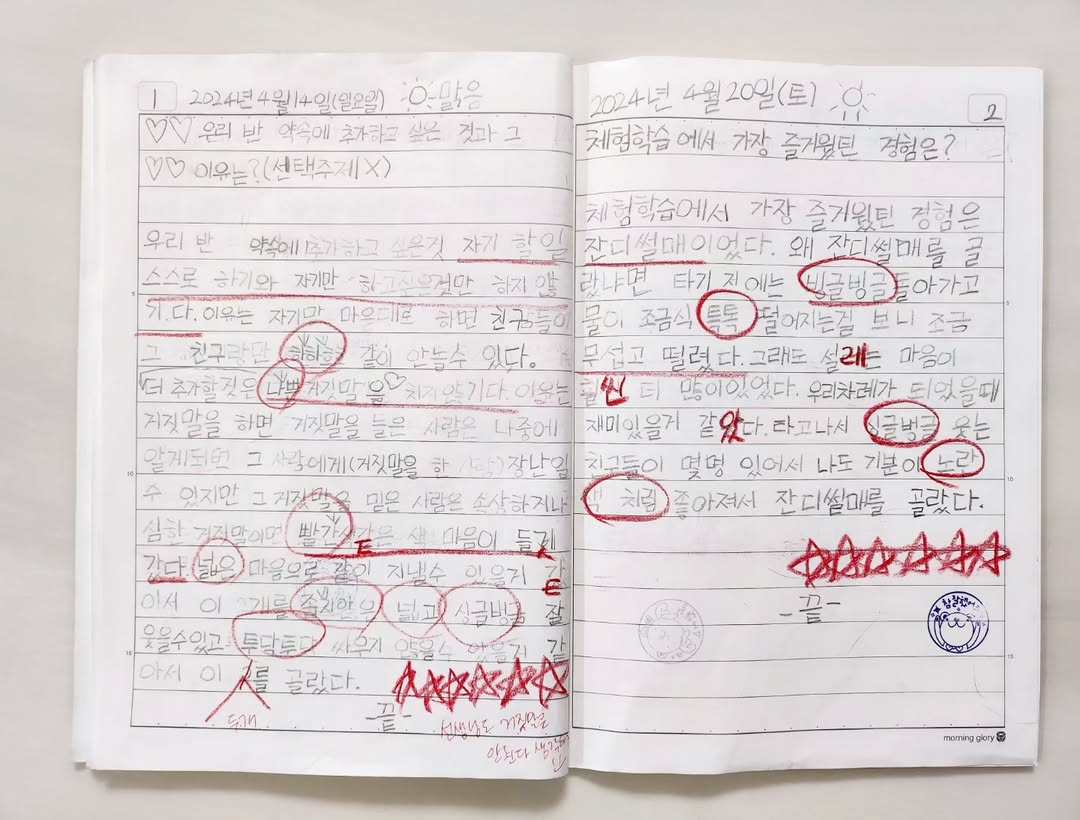 1 2024년 4월 14일(일요일) 맑음
우리 반 약속에 추가하고 싶은 것과 그
이유는?(선택주제X)
우리 반 약속에 추가하고 싶은것 자기 할일
스스로 하기와 자기만 하고싶은것만 하지 않
기.다. 이유는 자기만 마음대로 하면 친구들이
그 친구랑만 하하호 같이 안놀수 있다.
더 추가할것은 나쁜 거짓말을 치지 않기다. 이유는
거짓말을 하면 거짓말을 들은 사람은 나중에
알게되면 그 사람에게(거짓말을 한 사람) 장난일
수 있지만 그 거짓말을 믿은 사람은 속상하거나
심한 거짓말이면 빨간 같은 색 마음이 들게
간다. 넓은 마음으로 같이 지낼수 있을거 같
아서 이 2개를 넓고 싱글벙글 잘
웃을수있고 투닥투닥 싸우지 않을수 있을거 같
아서 이 를 골랐다.
두개
-끝-
선생님도 거짓말은
안된다 생각해
2024년 4월 20일(토) 2
체험학습에서 가장 즐거웠틴 경험은?
체험학습에서 가장 즐거웠틴 경험은
잔디썰매이었다. 왜 잔디썰매를 골
랐냐면 타기 전에는 빙글빙글 돌아가고
물이 조금식 톡톡 떨어지는걸 보니 조금
무섭고 떨렸다. 그래도 설레는 마음이
훨씬 더 많이있었다. 우리차례가 되었을때
재미있을거 같았다. 타고나서 싱글벙글 웃는
친구들이 몇명 있어서 나도 기분이 노란
색 처럼 좋아져서 잔디썰매를 골랐다.
-끝-
참잘했어요
morning glory